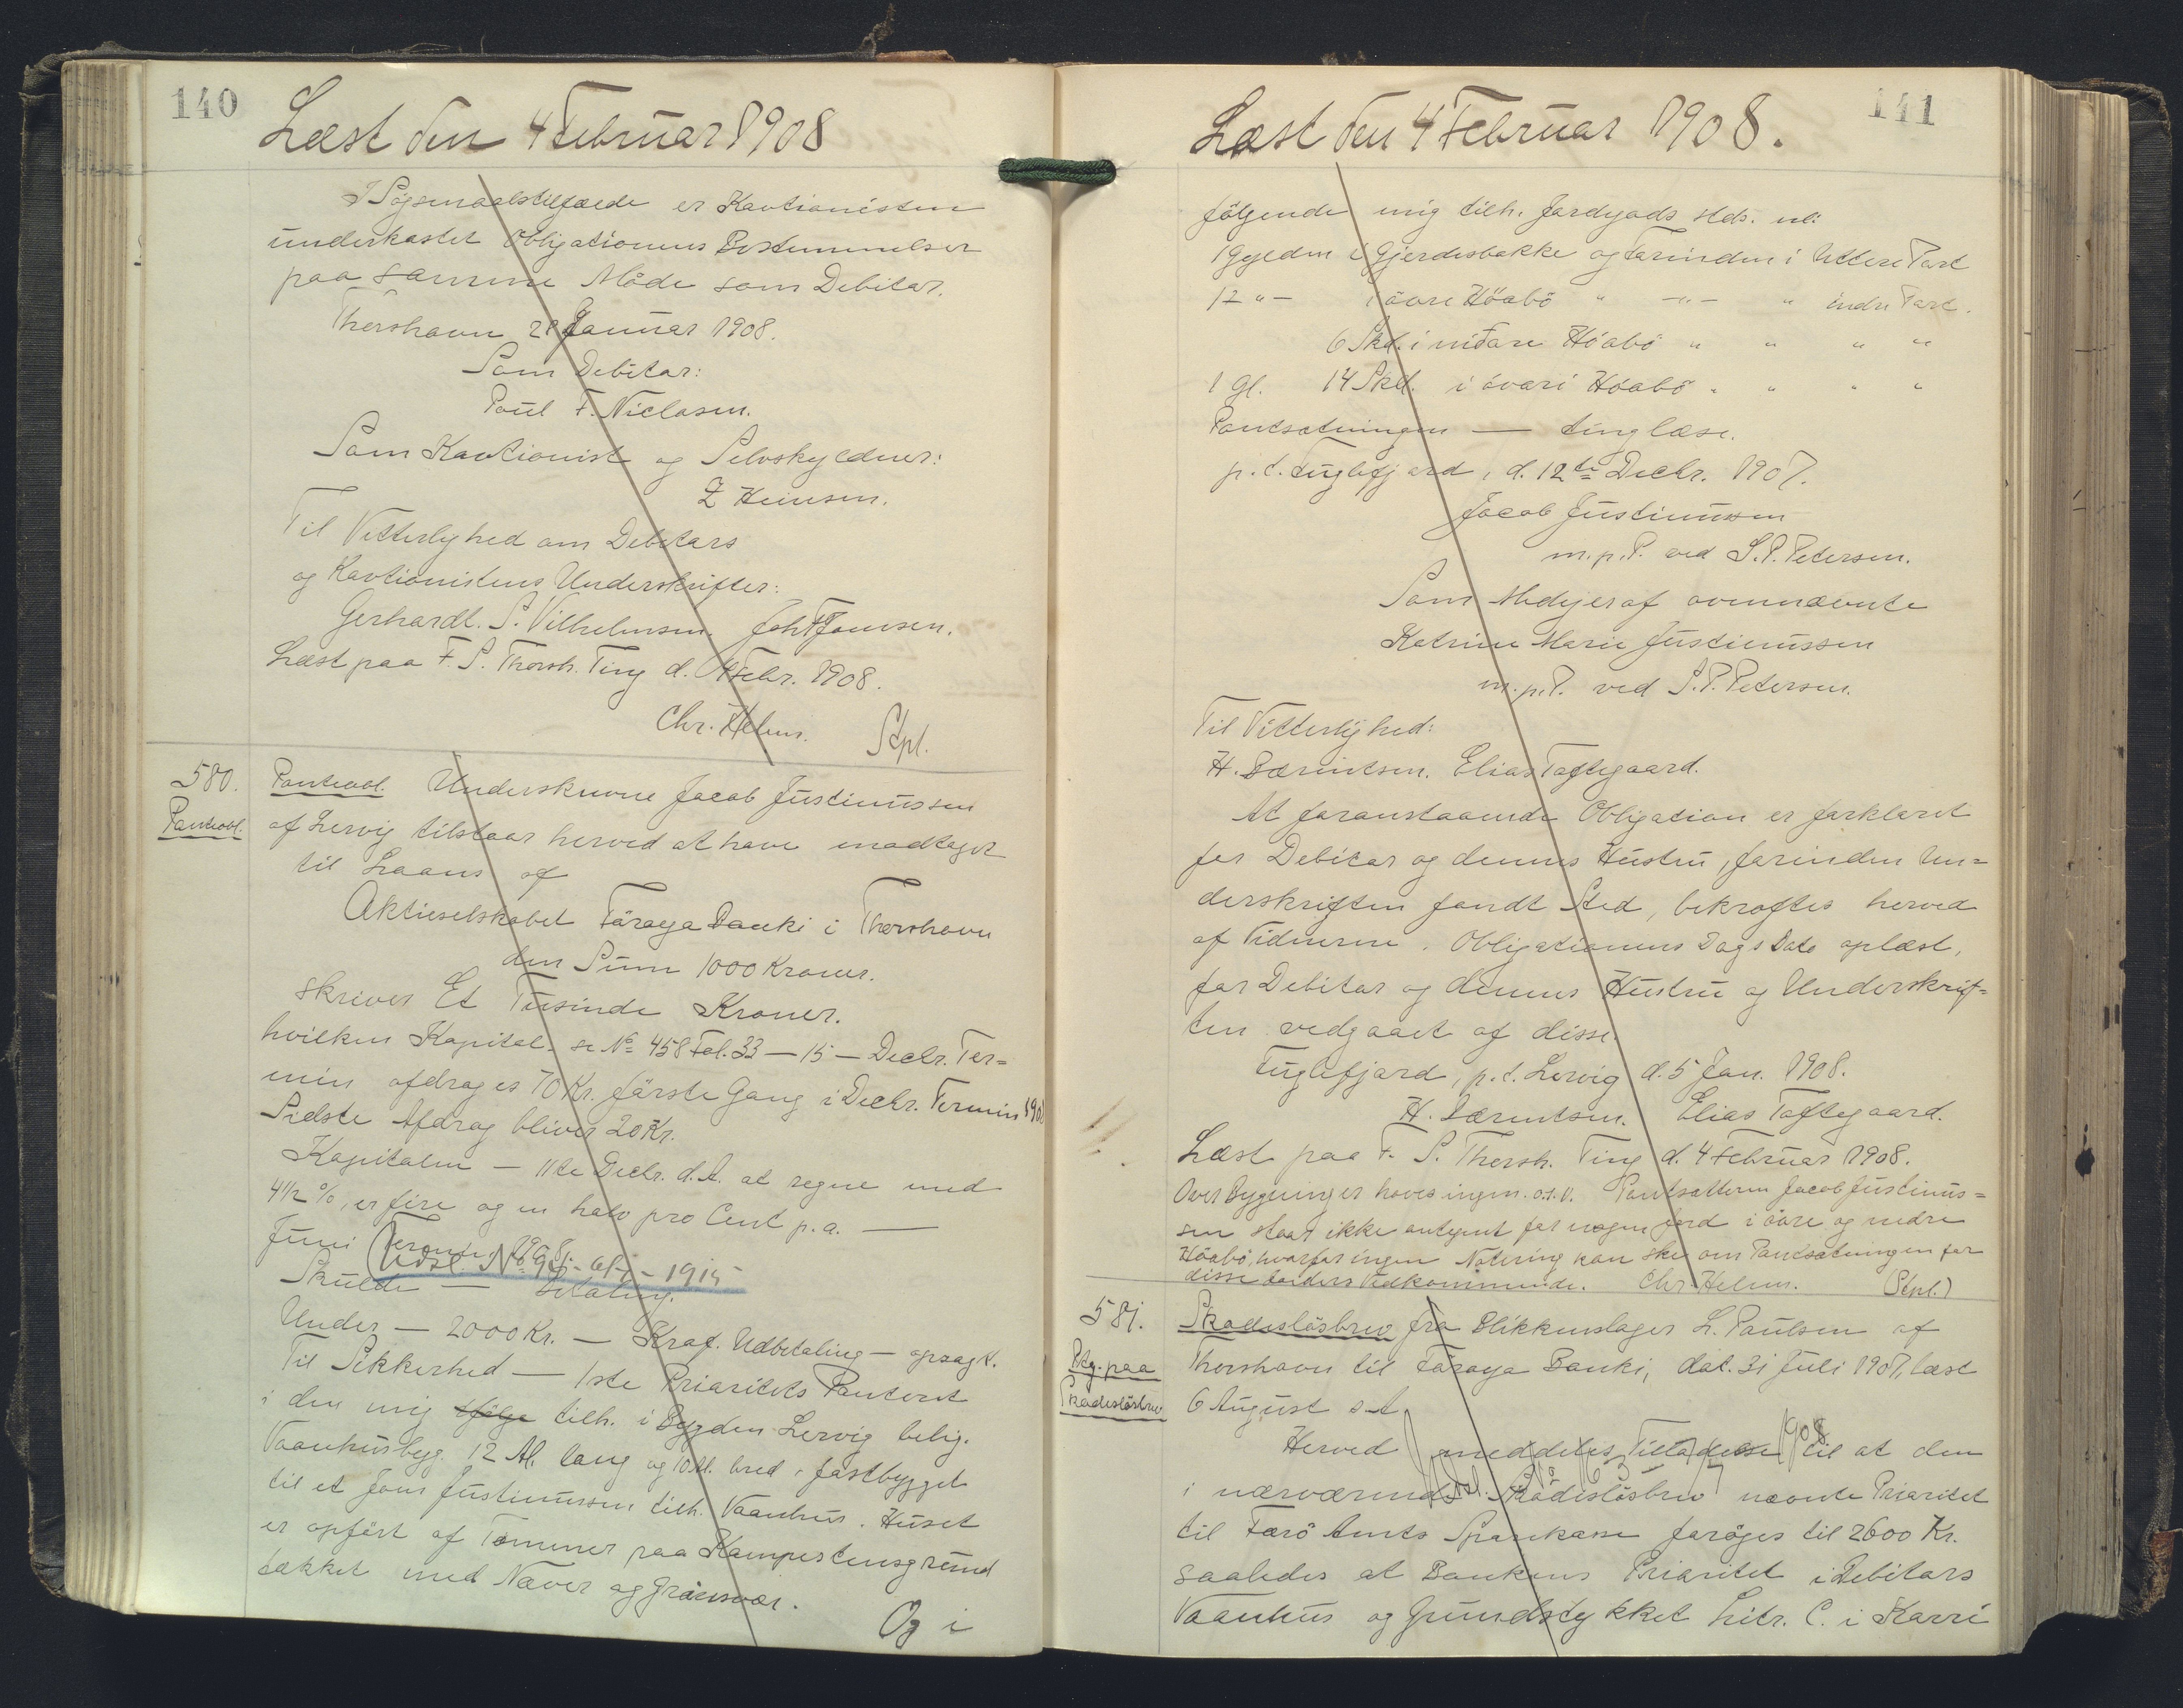 140
Læst den 4 Februar 1908
I Søgsmaalstilfælde er Kautionisten
underkastet Obligationens Bestemmelser
paa samme Maade som Debitor.
Thorshavn 28 Januar 1908.
Som Debitor:
Poul F. Niclasen.
Som Kautionist og Selvskyldner:
Z Heinesen.
Til Vitterlighed om Debitors
og Kautionistens Underskrifter:
Gerhardt. S. Vilhelmsen. Joh Joensen.
Læst paa F. S. Thorsh. Ting d. 4 Febr. 1908.
Chr. Helms. Stpl.
580.
Panteobl.
Panteobl. Underskrevne Jacob Justinussen
af Lervig tilstaar herved at have modtaget
til Laans af
Aktieselskabet Føroya Banki i Thorshavn
den Sum 1000 Kroner.
skriver Et Tusinde Kroner.
hvilken Kapital - se No 458 Fol. 33 — 15 — Decbr. Ter=
min afdrages 70 Kr. første Gang i Decbr. Termin 1908
Sidste Afdrag bliver 20 Kr.
Kapitalen — 11te Decbr. d. A. at regne med
4 1/2 %, er fire og en halv pro Cent p. a. —
Juni Termin 1908.
Udsl. No 96 - 1915
Skulde — Betaling.
Under — 2000 Kr. — Kraf. Udbetaling — opsagt.
Til Sikkerhed — 1ste Prioritets Panteret
i den mig tilh. i Bygden Lervig belig.
Vaanhusbyg. 12 Al. lang og 10 Al. bred, fastbygget
til et Jens Justinussen tilh. Vaanhus. Huset
er opført af Tømmer paa Kampestensgrund
tækket med Næver og Grønsvær.
Og i
141
Læst den 4 Februar 1908.
følgende mig tilh. Jordgods sstds. nl:
1 Gylden i Gjerdesbakke og Farinden i Uttere Part
12 " — i øvre Höabö " — " — " indre Part.
6 Skd. i niðare Höabö " " " "
1 gl. 14 Skd. i óvari Höabö " " " "
Pantsætningen — tinglæse.
p. t. Fuglefjord, d. 12te Decbr. 1907.
Jacob Justinussen
m. p. P. ved S. P. Petersen.
Som Medejer af ovennævnte
Katrine Marie Justinussen
m. p. P. ved S. P. Petersen.
Til Vitterlighed:
H. Bærentsen. Elias Toftegaard.
At foranstaaende Obligation er forklaret
for Debitor og dennes Hustru, forinden Un=
derskriften fandt Sted, bekræftes herved
af Vidnerne. Obligationens Dags Dato oplæst,
for Debitor og dennes Hustru og Underskrif=
ten vedgaaet af disse.
Fuglefjord, p. t. Lervig d. 5 Jan. 1908.
H. Bærentsen. Elias Toftegaard.
Læst paa F. S. Thorsh. Ting d. 4 Februar 1908.
Over Bygninger haves ingen o. s. v. Pantsætteren Jacob Justinus=
sen staar ikke antegnet for nogen Jord i øvre og nedre
Höabö, hvorfor ingen Notering kan ske om Pantsætningen for
disse Jorders Vedkommende. Chr. Helms. (Stpl.)
581.
Ptg. paa
Skadesløsbrev
Skadesløsbrev fra Blikkenslager L. Paulsen af
Thorshavn til Føroya Banki, dat. 31 Juli 1907, læst
6 August s. A.
Herved meddeles Tilladelse til at den
i nærværende Skadesløsbrev nævnte Prioritet
til Færø Amts Sparekasse forøges til 2600 Kr.
saaledes at Bankens Prioritet i Debitors
Vaanhus og Grundstykket Litr. C. i Karri